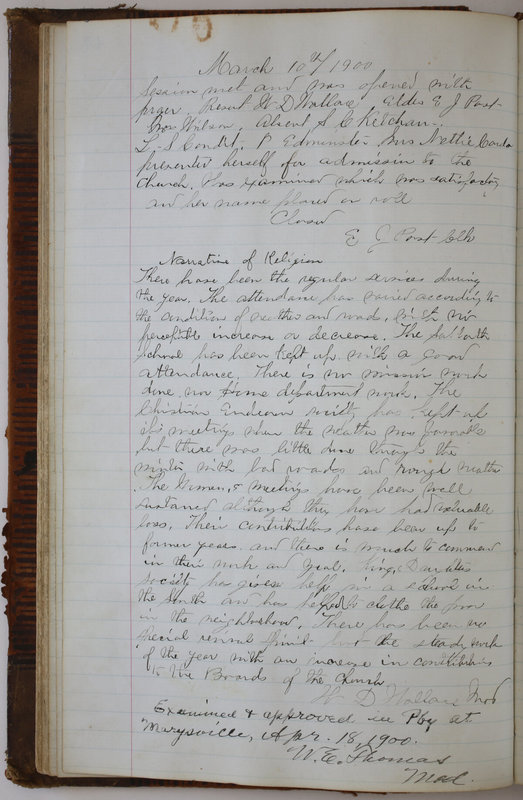 March 10th/1900
Session met and was opened with
prayer. Present W D Wallace, Elders E J Post
Wilson, Absent S C Ketcham.
L. S Condit, B Edminster, Mrs Nettie
presented herself for admission to the
Church. Was examined which was satisfactory
and her name placed on roll
Closed
E J Post Clk
Narrative of Religion
There have been the regular services during
the year. The attendance has varied according to
the conditions of weather and road, with no
perceptible increase or decrease. The Sabbath
School has been kept up with a good
attendance. There is no mission work
done, nor Home department work. The
Christian Endeavor society has kept up
its meetings when the weather was favorable
but there was little done through the
winter with bad roades and rough weather
The Womans meetings have been well
sustained although they have had valuable
loss. Their contributions have been up to
former years. and there is much to commend
in their work and zeal. Kings Daughters
society has given help in a school in
the South and has helped to clothe the poor
in the neighborhood. There has been no
special revival Spirit but the steady work
of the year with an increase in contributions
to the Boards of the Church
W D Wallace Mod
Examined & approved in Pby at
Marysville, Apr. 18, 1900.
W. E. Thomas
Mod.